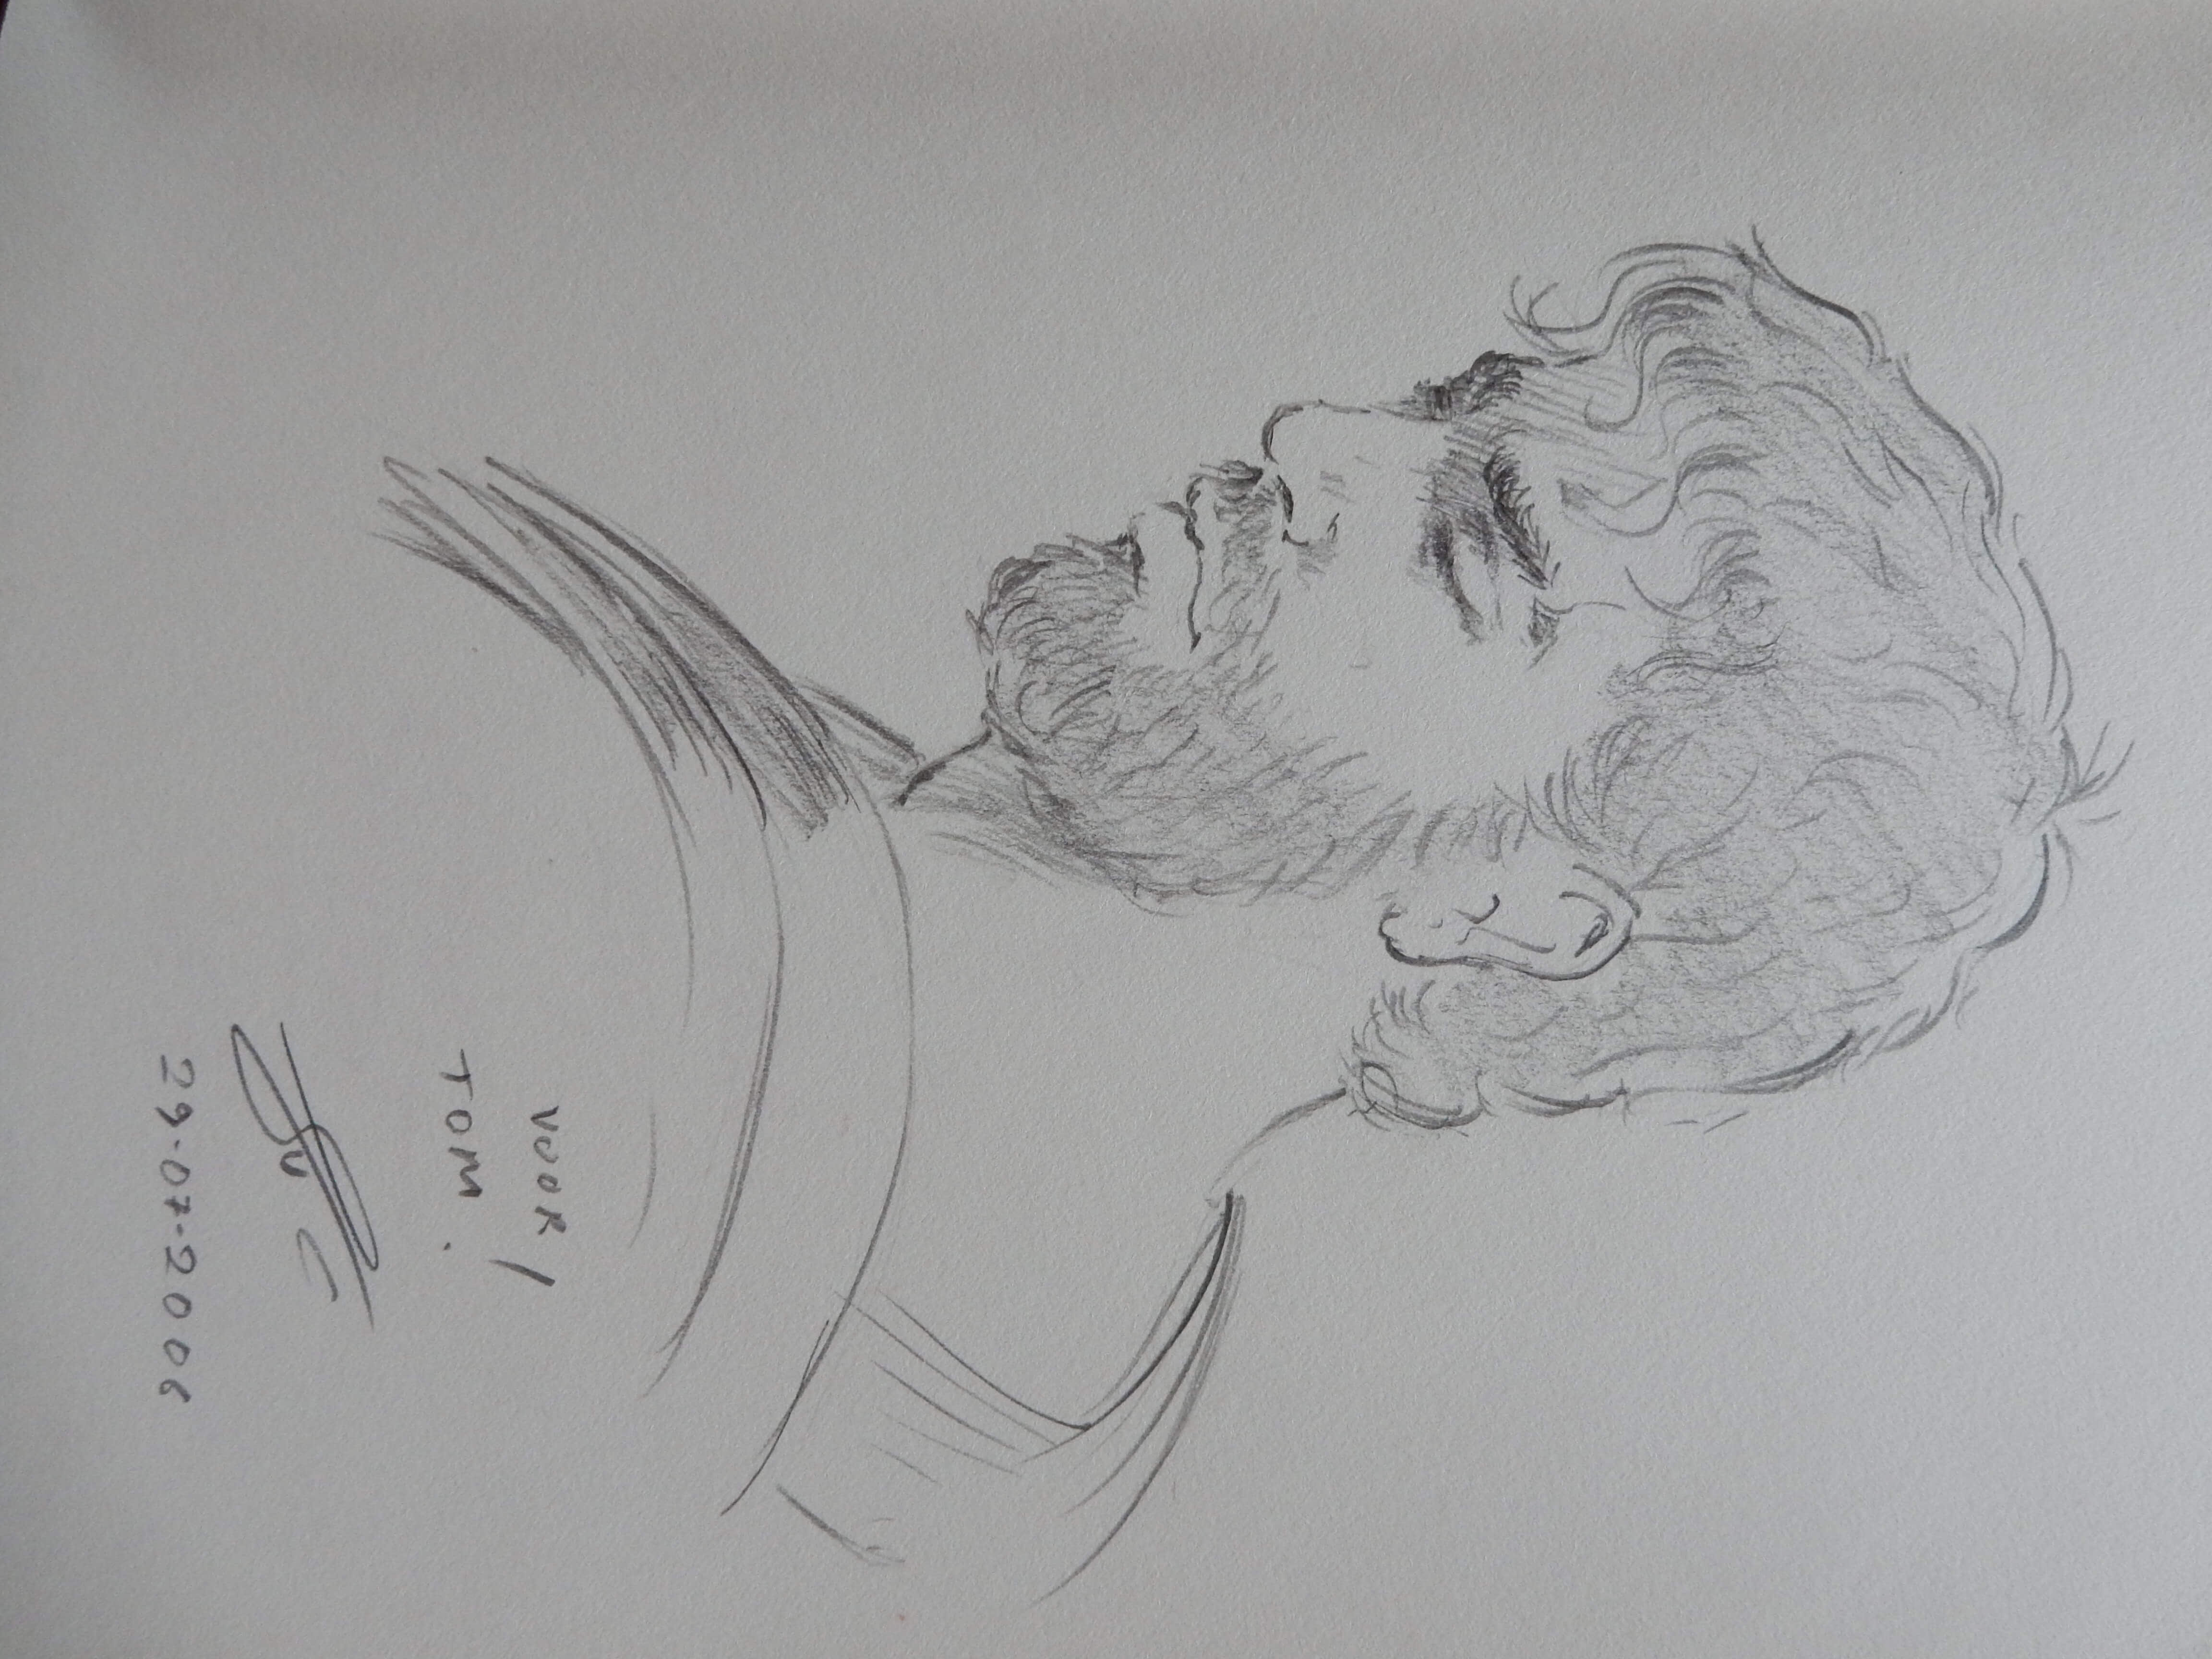 VOOR
TOM!
29-07-2006